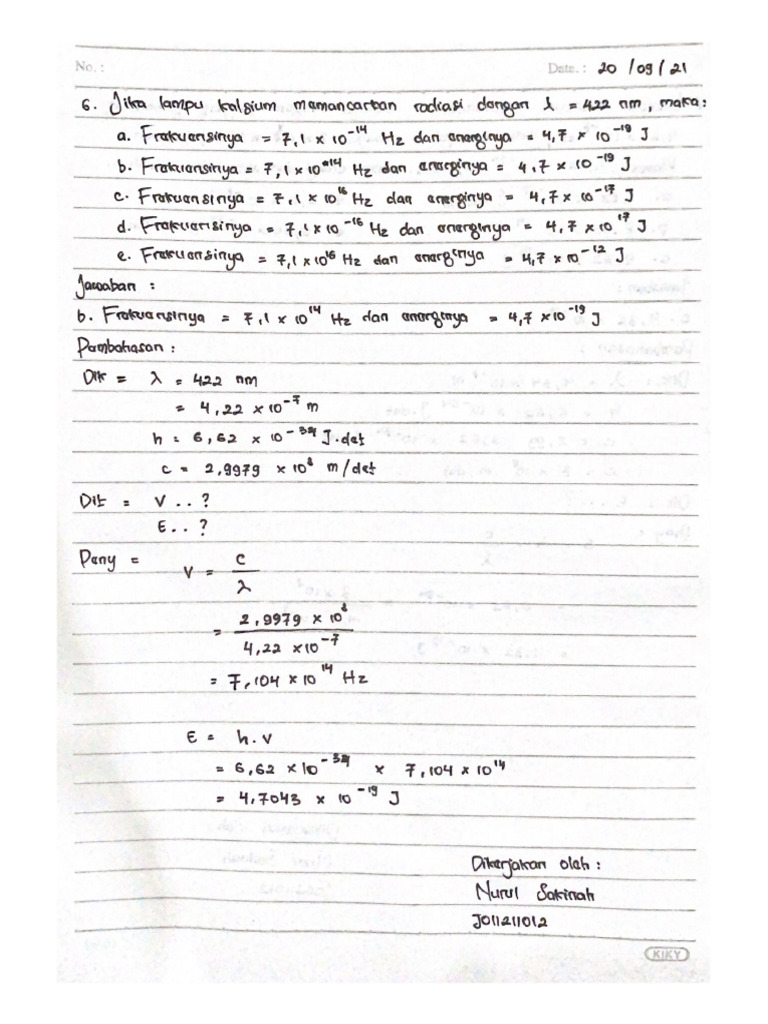 No.: Date.: 20 /09 /21
6. Jika lampu kalsium memancarkan radiasi dengan λ = 422 nm, maka:
a. Frekuensinya = 7,1 × 10⁻¹⁴ Hz dan energinya = 4,7 × 10⁻¹⁹ J
b. Frekuensinya = 7,1 × 10¹⁴ Hz dan energinya = 4,7 × 10⁻¹⁹ J
c. Frekuensinya = 7,1 × 10¹⁶ Hz dan energinya = 4,7 × 10⁻¹⁷ J
d. Frekuensinya = 7,1 × 10⁻¹⁶ Hz dan energinya = 4,7 × 10¹⁷ J
e. Frekuensinya = 7,1 × 10¹⁶ Hz dan energinya = 4,7 × 10⁻¹² J
Jawaban :
b. Frekuensinya = 7,1 × 10¹⁴ Hz dan energinya = 4,7 × 10⁻¹⁹ J
Pembahasan :
Dik = λ = 422 nm
= 4,22 × 10⁻⁷ m
h = 6,62 × 10⁻³⁴ J.det
c = 2,9979 × 10⁸ m/det
Dit = V . . ?
E . . ?
Peny = V = c / λ
= 2,9979 × 10⁸ / 4,22 × 10⁻⁷
= 7,104 × 10¹⁴ Hz
E = h.v
= 6,62 × 10⁻³⁴ × 7,104 × 10¹⁴
= 4,7043 × 10⁻¹⁹ J
Dikerjakan oleh :
Nurul Sakinah
J011211012
KIKY